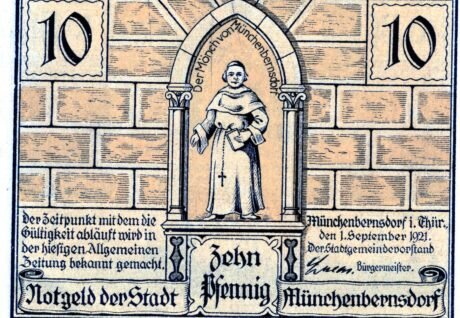 10
10
Der Mönch von Münchenbernsdorf
Der Zeitpunkt mit dem die
Gültigkeit abläuft wird in
der hiesigen Allgemeinen
Zeitung bekannt gemacht.
Münchenbernsdorf i. Thür.,
den 1. September 1921.
Der Stadtgemeindevorstand
Bürgermeister.
Zehn
Pfennig
Notgeld der Stadt
Münchenbernsdorf